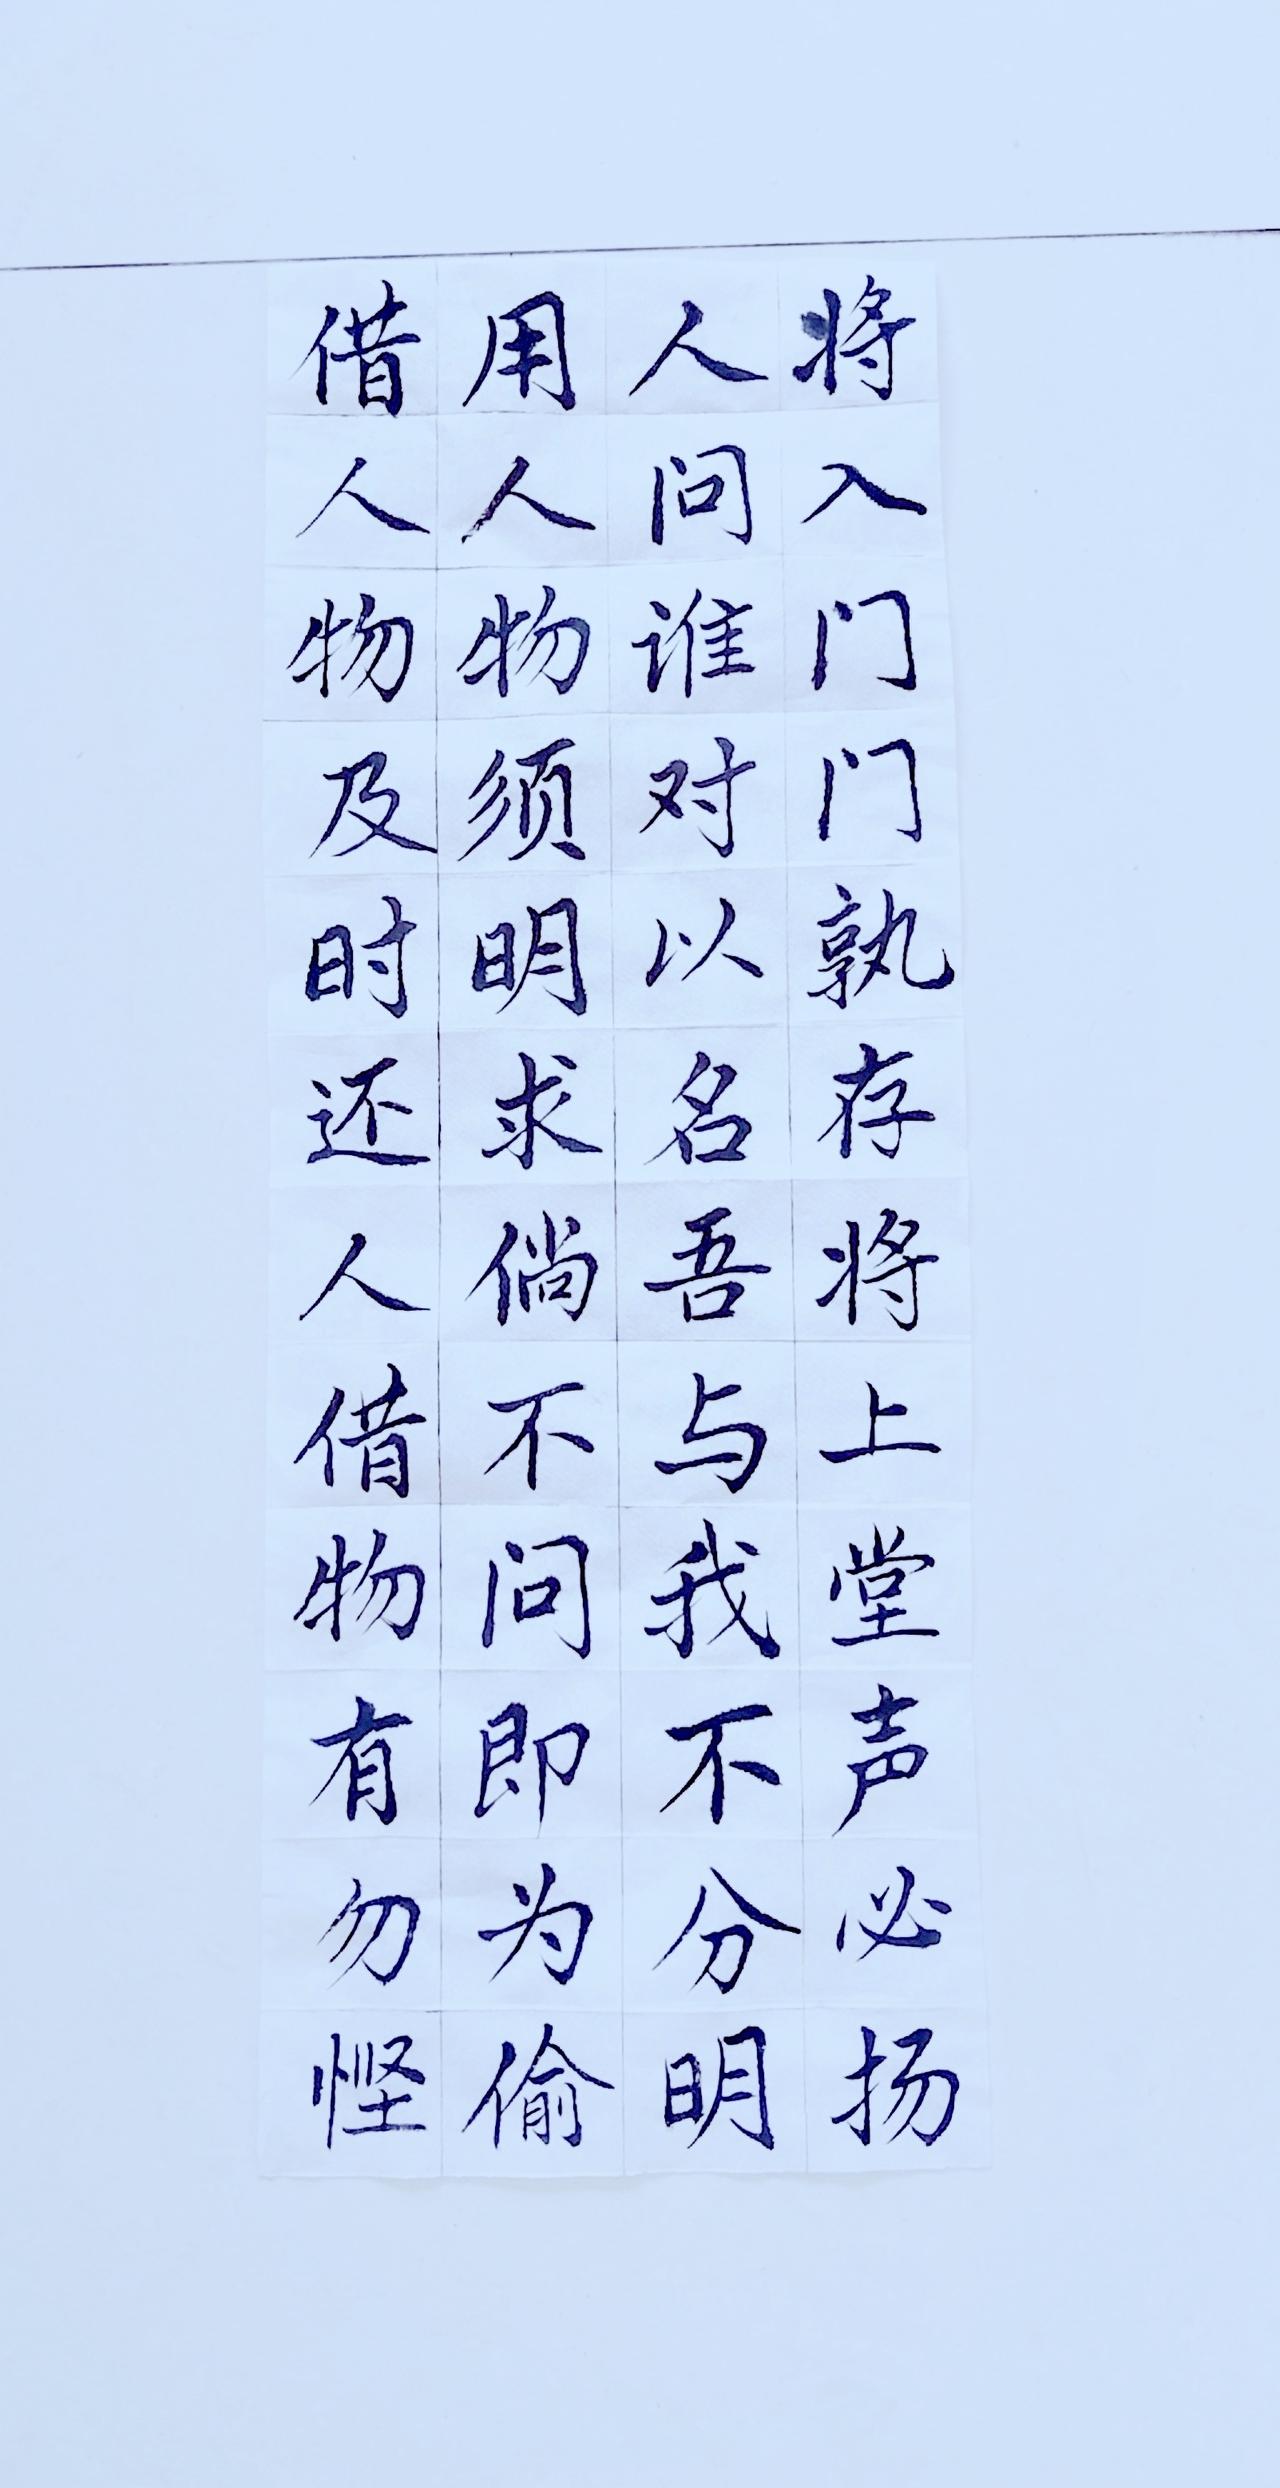 将入门门孰存将上堂声必扬
人问谁对以名吾与我不分明
用人物须明求倘不问即为偷
借人物及时还人借物有勿悭